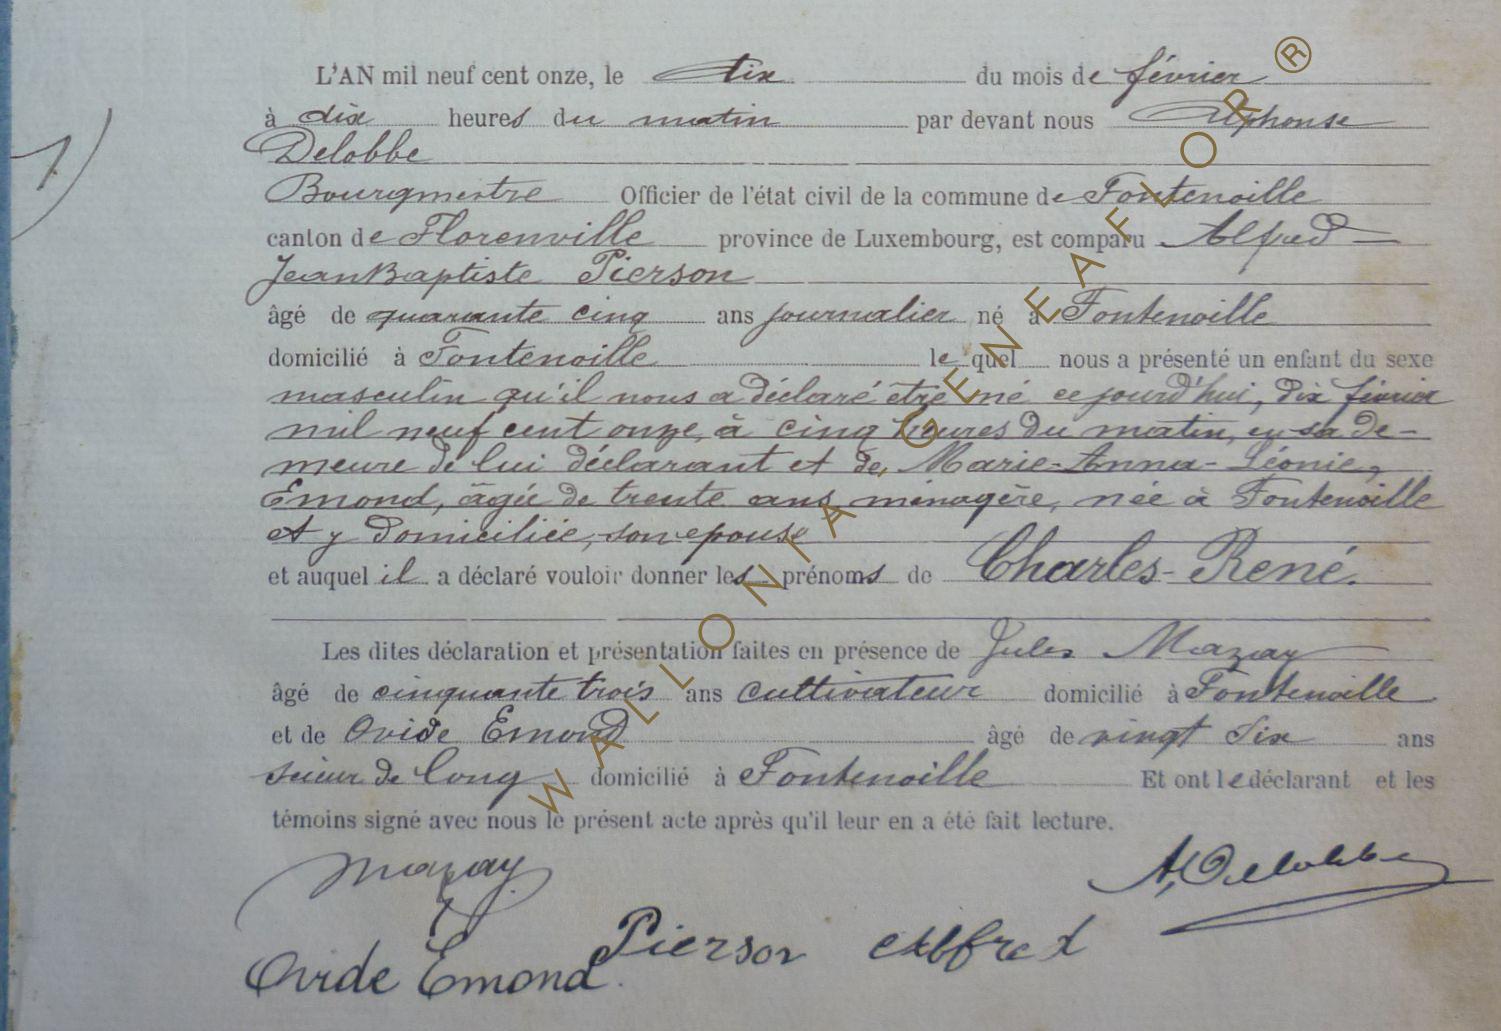 L'AN mil neuf cent onze, le dix du mois de février
à dix heures du matin par devant nous Alphonse
Delobbe
Bourgmestre Officier de l'état civil de la commune de Fontenoille
canton de Florenville province de Luxembourg, est comparu Alfred
Jean Baptiste Pierson
âgé de quarante cinq ans journalier né à Fontenoille
domicilié à Fontenoille lequel nous a présenté un enfant du sexe
masculin qu'il nous a déclaré être né ce jourd'hui, dix février
mil neuf cent onze, à cinq heures du matin, en sa de-
meure de lui déclarant et de Marie-Anna-Léonie,
Emond, âgée de trente ans ménagère, née à Fontenoille
et y domiciliée, son epouse
et auquel il a déclaré vouloir donner les prénoms de Charles-René.
Les dites déclaration et présentation faites en présence de Jules Mazay
âgé de cinquante trois ans cultivateur domicilié à Fontenoille
et de Ovide Emond âgé de vingt six ans
scieur de long domicilié à Fontenoille Et ont le déclarant et les
témoins signé avec nous le présent acte après qu'il leur en a été fait lecture.
Mazay
A, Delobbe
Pierson Allfred
Ovide Emond.
1)
WALLONIA, GENEAFLOR ®